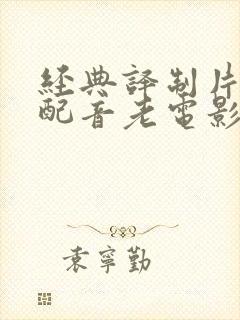 經典譯制片
配音老電影
袁寧勤